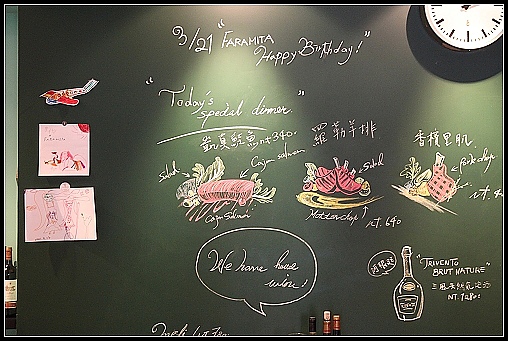 3/21 "FARAMITA
Happy Birthday!"
"Today's
special dinner."
凱真鮭魚 nt 340.
羅勒羊排
香檳里肌
salad
Cajun salmon
Cajun Salmon
Salad
Mutton chop
NT. 640
Pork chop
NT. 4
We have house
wine!
"TRIVENTO
BRUT NATURE"
NT. 1280